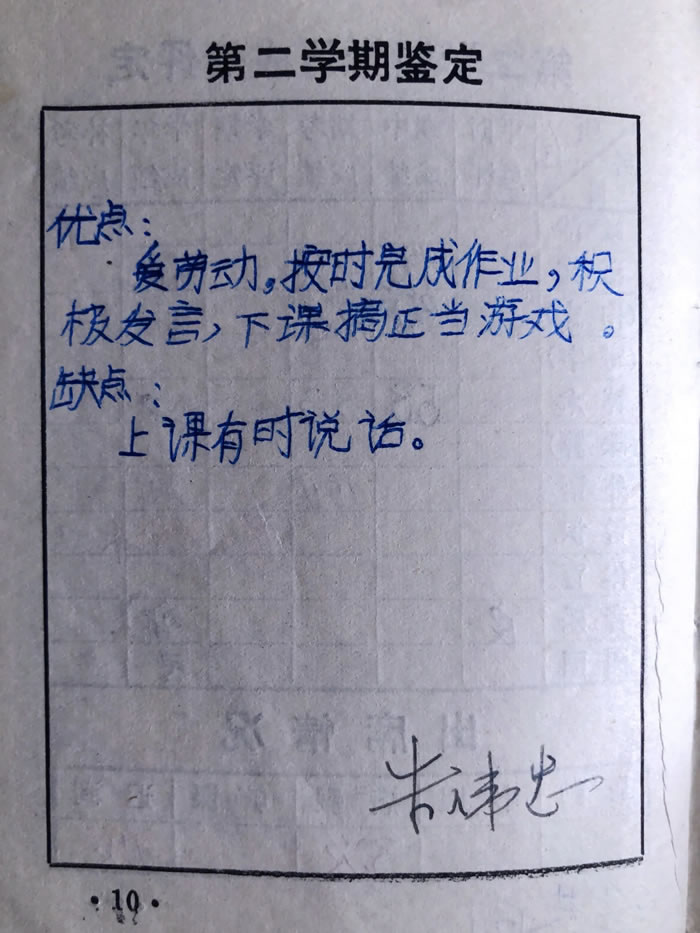 第二学期鉴定
优点：
爱劳动，按时完成作业，积
极发言，下课搞正当游戏。
缺点：
上课有时说话。
·10·